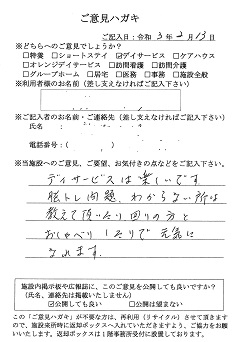 ご意見ハガキ
ご記入日：令和 3 年 2 月 13 日
※どちらへのご意見でしょうか？
□特養 □ショートステイ ☑デイサービス □ケアハウス
□オレンジデイサービス □訪問看護 □訪問介護
□グループホーム □居宅 □医務 □事務 □施設全般
※利用者様のお名前（差し支えなければご記入下さい）
※ご記入者のお名前・ご連絡先（差し支えなければご記入下さい）
氏名：
電話番号：（
※当施設へのご意見、ご要望、お気付きの点などをご記入下さい。
デイサービスは楽しいです
脳トレ問題、わからない所は
教えて頂いたり回りの方と
おしゃべりしたりで元気に
なれます。
施設内掲示板や広報誌に、このご意見を公開しても良いですか？
（氏名、連絡先は掲載いたしません）
☑公開しても良い □公開は望まない
この「ご意見ハガキ」が不要な方は、再利用（リサイクル）させて頂きますので、施設来所時に返却ボックスへ入れていただきますよう、ご協力をお願いいたします。返却ボックスは1階事務所受付に設置しております。